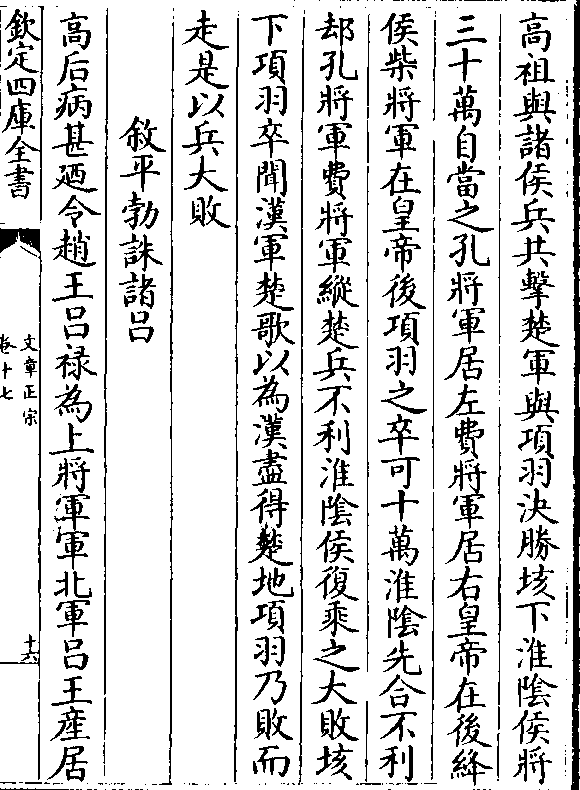 高祖與諸侯兵共擊楚軍與項羽決勝垓下淮陰侯將
三十萬自當之孔將軍居左費將軍居右皇帝在後絳
侯柴將軍在皇帝後項羽之卒可十萬淮陰先合不利
却孔將軍費將軍縱楚兵不利淮陰侯復乘之大敗垓
下項羽卒聞漢軍楚歌以為漢盡得楚地項羽乃敗而
走是以兵大敗
敘平勃誅諸呂
高后病甚廼令趙王呂禄為上將軍軍北軍呂王產居
欽定四庫全書
文章正宗
卷十七
十六